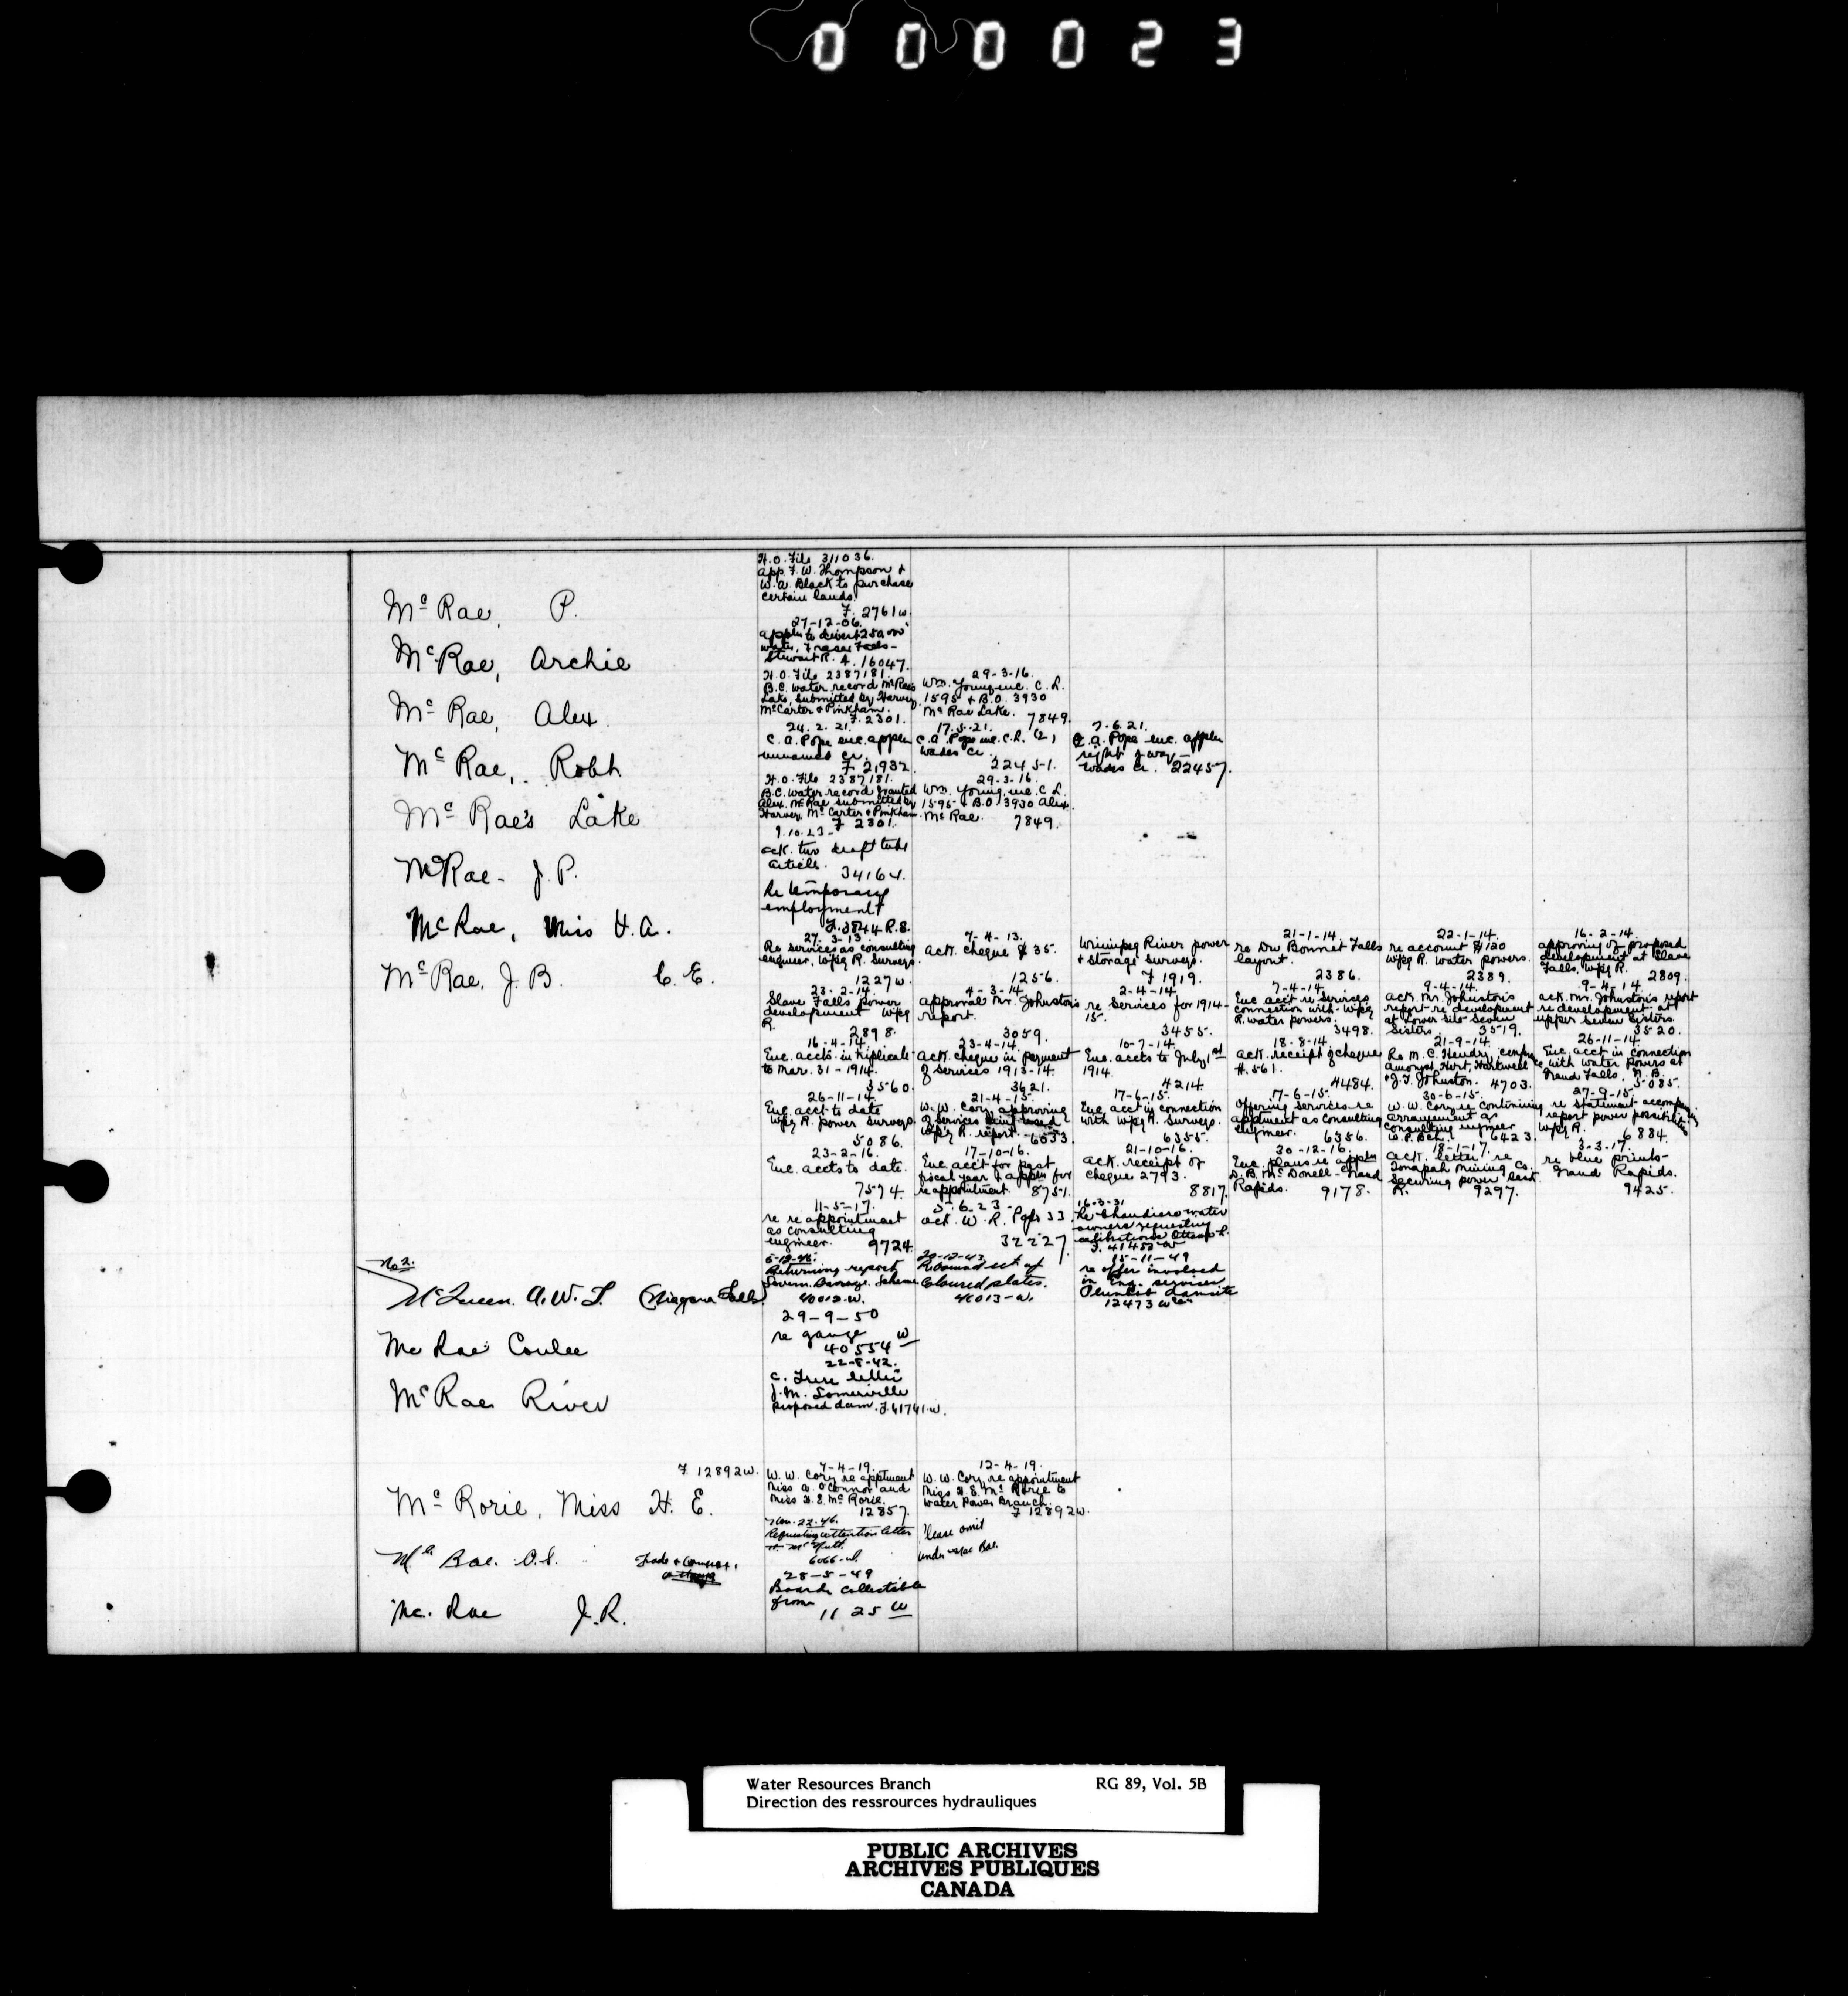 000023
H.O. File 311036.
app. F. W. Thompson +
W.A. Black to purchase
certain lands.
McRae, P.
F. 2761w.
27-12-06.
water, Fraser Falls-
Stewart R. 16047.
McRae, Archie
H.O. File 2387181.
B.C. water record McRae's
Lake, submitted by Harvey,
McCarter & Pinkham.
F 2301.
29-3-16.
Wm. Young enc. C.L.
1595 + B.O. 3930
McRae Lake. 7849.
McRae, Alex.
24.2.21.
C.A. Pope enc. appln
unnamed Cr.
F 21932.
17.5.21.
C.A. Pope enc. C.L. (2)
Wades Cr.
22451.
7.6.21.
C.A. Pope enc. appln
right of way-
Wades Cr. 22457.
McRae, Robt.
H.O. File 2387181.
B.C. water record granted
Alex. McRae submitted by
Harvey, McCarter & Pinkham.
F 2301.
29-3-16.
Wm. Young, enc. C.L.
1595 + B.O. 3930 Alex.
McRae. 7849.
McRae's Lake
9.10.23-
ack. two draft tube
article.
34164.
McRae- J.P.
Re temporary
employment
F. 3844 R.S.
McRae, Miss H.A.
27-3-13.
Re services as consulting
engineer, Wpg R. Surveys.
1227w
7-4-13.
ack. cheque $35.
1256.
Winnipeg River power
+ storage surveys.
F 1919.
21-1-14.
re Du Bonnet Falls
layout.
2386.
22-1-14.
re account $120
Wpg R. water powers.
2389.
16-2-14.
approving of proposed
development at Slave
Falls, Wpg R. 2809.
McRae, J.B. C.E.
23-2-14.
Slave Falls power
development Wpg
R. 2898.
4-3-14.
approval Mr. Johnston's
report.
3059.
2-4-14.
re services for 1914-
15.
3455.
7-4-14.
Enc. acc't re services
connection with Wpg
R. water powers.
3498.
9-4-14.
ack. Mr. Johnston's
report re development
at Lower site Seven
Sisters. 3519.
9-4-14.
ack. Mr. Johnston's report
re development at
upper Seven Sisters.
3520.
16-4-14.
Enc. accts. in triplicate
to Mar. 31-1914.
3560.
23-4-14.
ack. cheque in payment
of services 1913-14.
3621.
10-7-14.
Enc. accts to July 1st
1914.
4214.
18-8-14.
ack. receipt of cheque
#. 561.
4484.
21-9-14.
Re M.C. Hendry, conference
amongst Hurt, Hartwell
& J.T. Johnston. 4703.
26-11-14.
Enc. acct in connection
with water powers at
Grand Falls, N.B.
5085.
26-11-14.
Enc. acct to date
Wpg R. power surveys.
5086.
21-4-15.
W.W. Cory approving
of services
Wpg R. report. 6033.
17-6-15.
Enc. acct in connection
with Wpg R. surveys.
6355.
17-6-15.
Offering services re
apptment as consulting
engineer. 6356.
30-6-15.
W.W. Cory re continuing
arrangement as
consulting engineer
6423.
27-9-15.
re statement accompanying
report power possibilities
Wpg R. 6884.
23-2-16.
Enc. accts to date.
7574.
17-10-16.
Enc. acct for past
fiscal year + appln for
reappointment. 8751.
21-10-16.
ack. receipt of
cheque 2793.
8817.
30-12-16.
Enc. plans re appln
D.B. McDonell- Grand
Rapids. 9178.
18-1-17.
ack. letter re
Tonapah Mining Co.
securing power
R. 9297.
3-3-17.
re blue prints-
Grand Rapids.
9425.
11-5-17.
re reappointment
as consulting
engineer. 9724.
5.6.23-
ack. W.R. Ppr 33.
32227.
16-3-31
Re Chaudiere water
owners requesting
calibrations Ottawa R.
F. 41452 W
No 2.
5-12-46.
Returning report
Severn Barrage Scheme
40012-W.
20-12-43.
Re bound set of
Coloured plates.
40013-W.
15-11-49
re offer involved
in Eng. services
damsite
12473 W
McQueen. A.W.F. (Niagara Falls)
29-9-50
re gauge
40554 W
McRae Coulee
22-8-42.
J.M. Somerville
proposed dam. F. 41741.W.
McRae River
F 12892w.
7-4-19.
W.W. Cory re apptment
Miss A. O'Connor and
Miss H.E. McRorie.
12857.
12-4-19.
W.W. Cory, re appointment
Miss H.E. McRorie to
Water Power Branch.
F 12892w.
McRorie, Miss H. E.
Nov. 22-46.
Requesting attention letter
6066-W.
Please omit
under Mac Rae.
McRae. O.S. Trade & Commerce,
28-5-49
Boards collectable
from
1125 W
Mc. Rae J.R.
Water Resources Branch RG 89, Vol. 5B
Direction des ressrources hydrauliques
PUBLIC ARCHIVES
ARCHIVES PUBLIQUES
CANADA